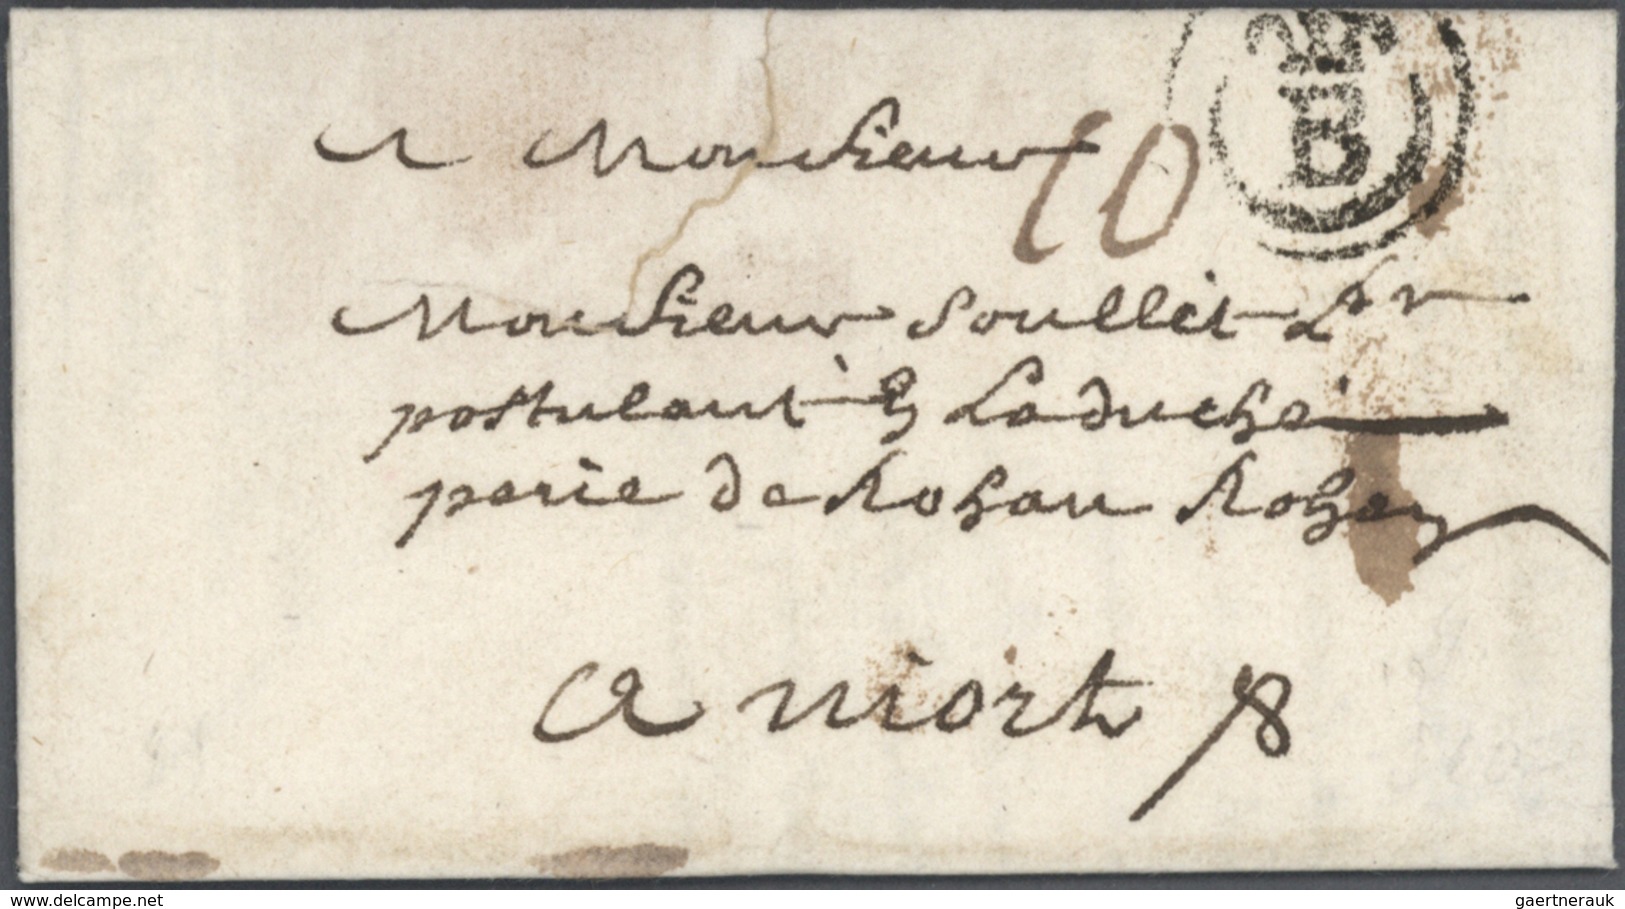 A Monsieur
10
B
Monsieur Soullet
postulant à La duché
perie de Rohan Rohan
a niort
delcampe.net
gaertnerauk